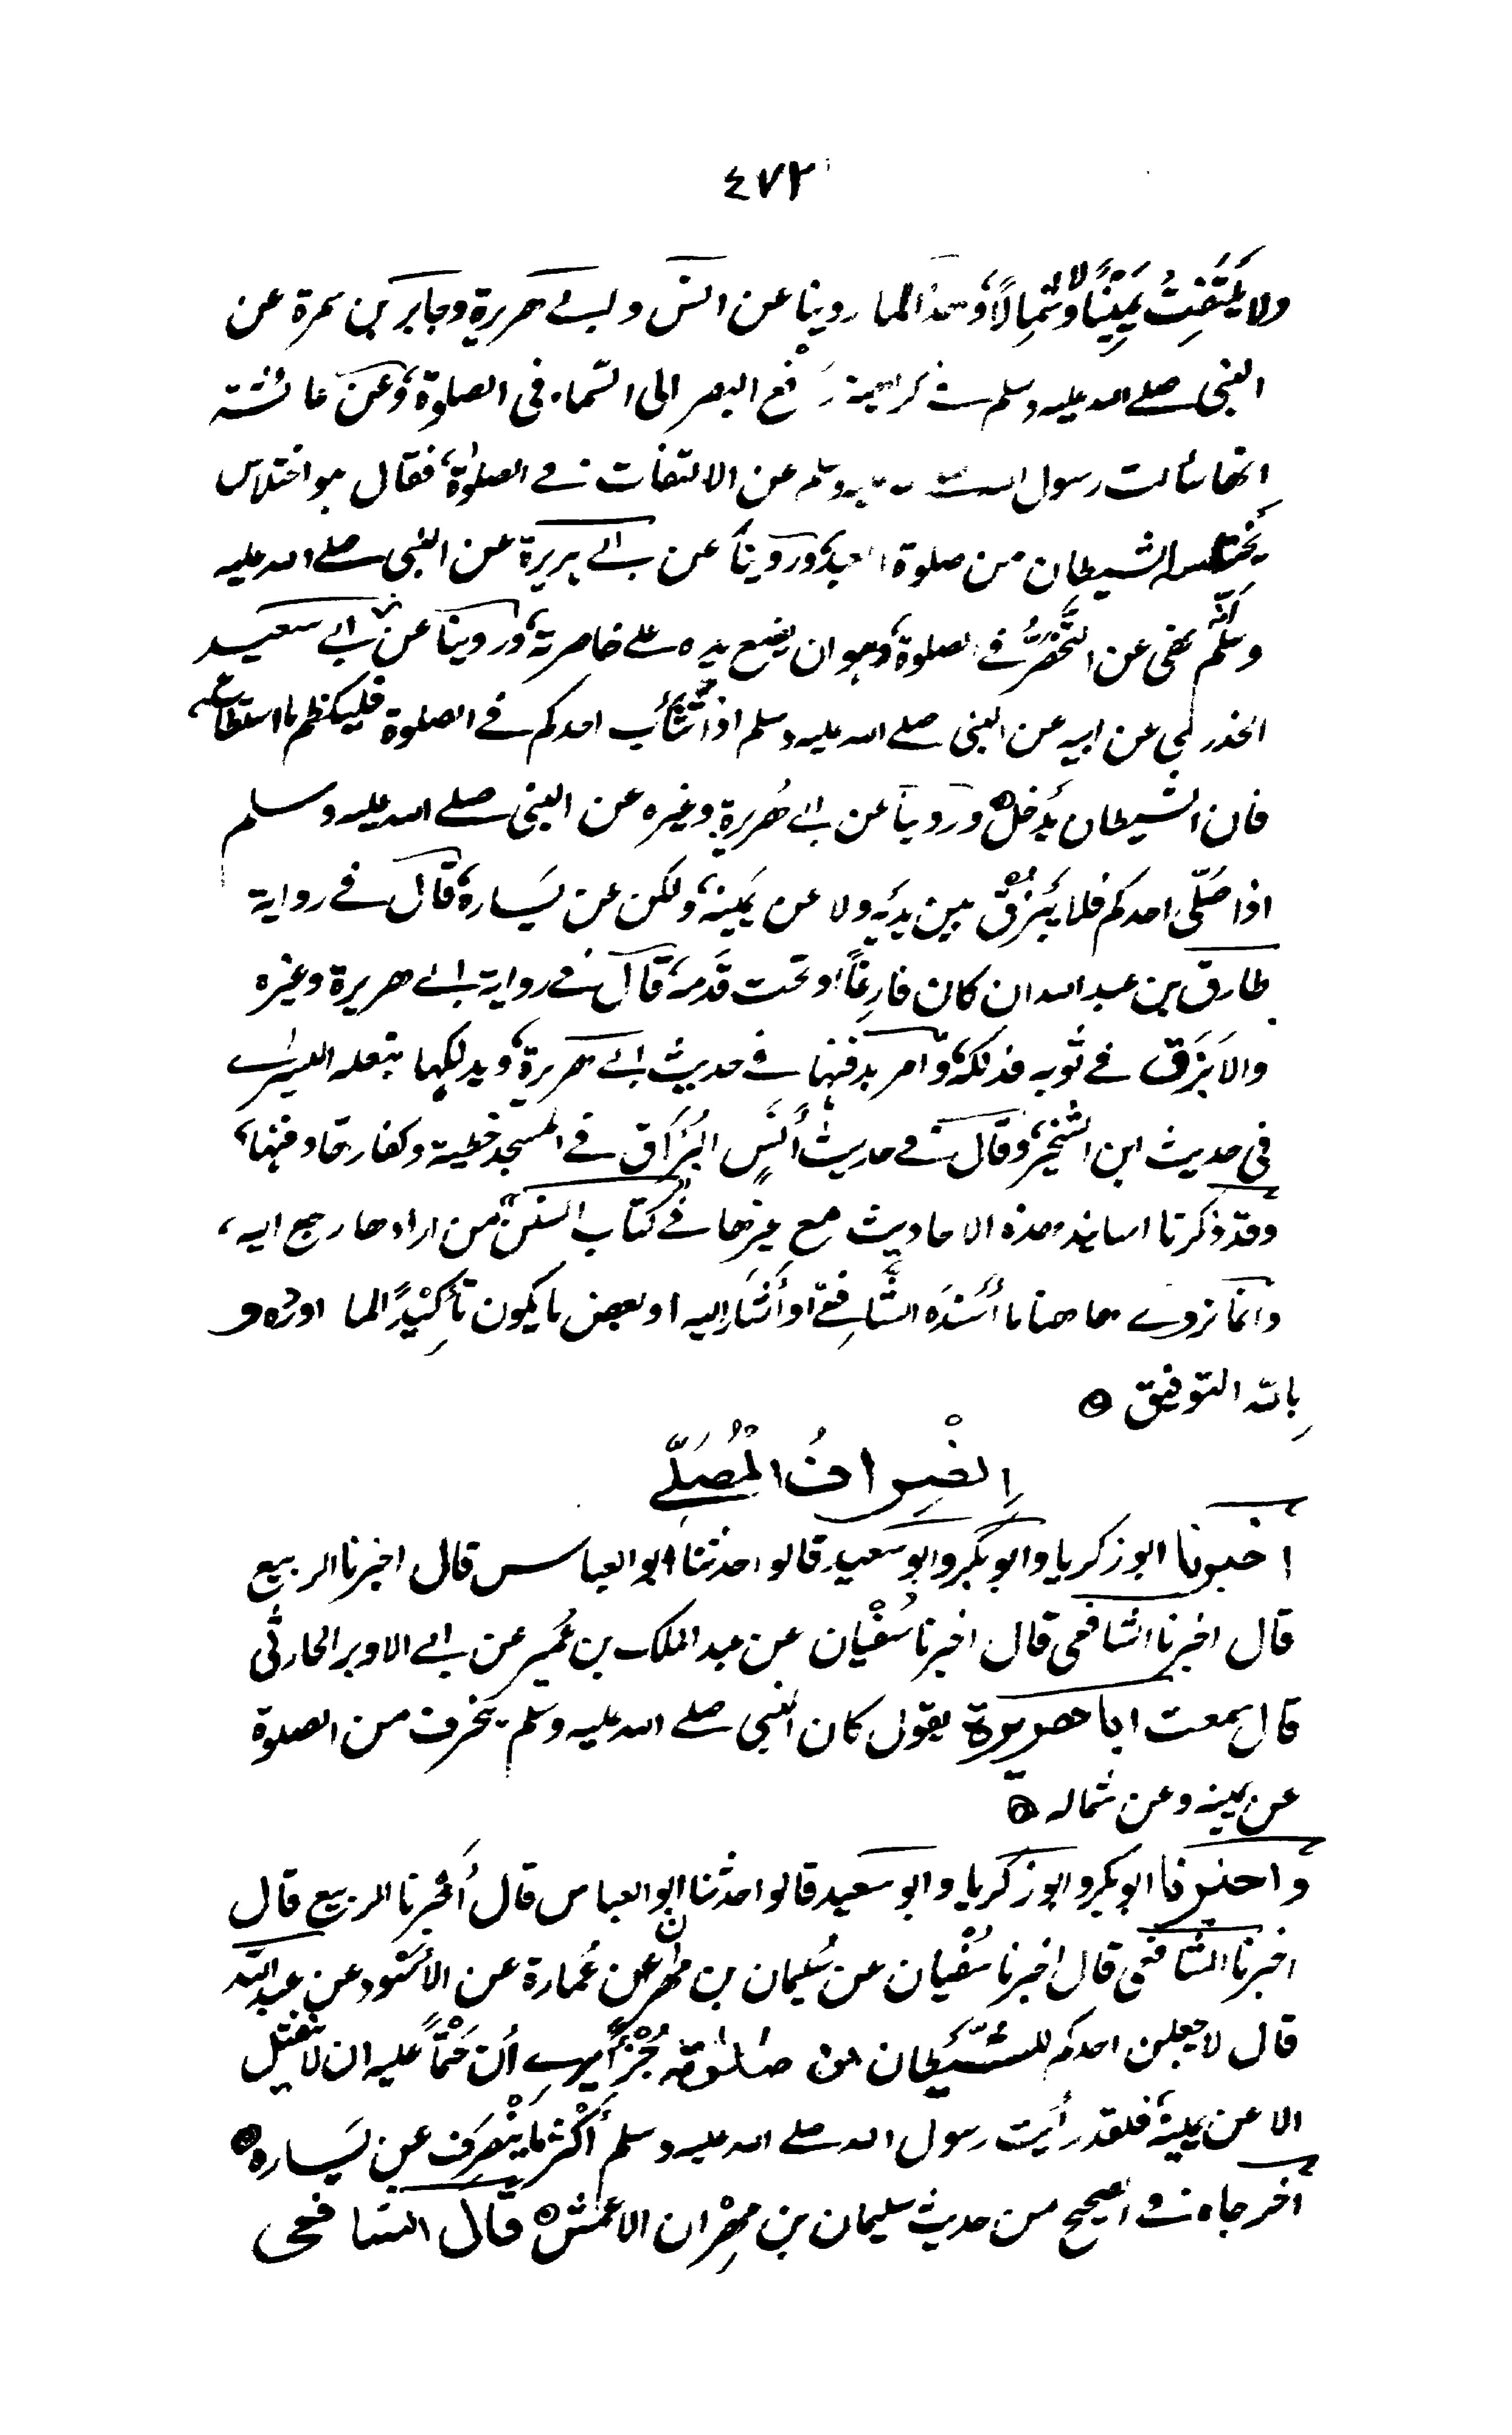 ٤٧٢
ولا يَلتَفِتُ يَمِيْنًا ولا شِمَالاً، وهذا لما روينا عن انس وابي هريرة وجابر بن سمرة عن
النبي صلى الله عليه وسلم في كراهية رَفْع البصر الى السّماء في الصلوة، وعن عائشة
انها سألت رسول الله صلى الله عليه وسلم عن الالتفات في الصلوٰة، فقال هو اختلاس
يَختلسه الشيطان من صلوة العبد، وروينا عن ابي هريرة عن النبي صلى الله عليه
وسلم انّه نهى عن التَّخَصُّر في الصلوة، وهو ان يضع يده على خاصرته، وروينا عن ابن ابي سعيد
الخدري عن ابيه عن النبي صلى الله عليه وسلم اذا تثأب احدكم في الصلوة فليكظم ما استطاع،
فان الشيطان يَدخل ه وروينا عن ابي هُريرة وغيره عن النبي صلى الله عليه وسلم
اذا صَلّى احدكم فلا يَبْزُقْ بين يديه ولا عن يَمينه، ولكن عن يَساره، قال في رواية
طارق بن عبد الله ان كان فارِغاً او تحت قَدَمه، قال في رواية ابي هريرة وغيره
والا بَزَق في ثوبه فدلكه، وامر بدفنها في حديث ابي هريرة، ويدلكها بنعله اليسرى
في حديث ابن الشخّير، وقال في حديث أنَسٍ البُزَاق في المسجد خطية وكفارتها دفنها،
وقد ذكرنا اسانيد هذه الاحاديث مع غيرها في كتاب السنن من ارادها رجع اليه،
وانما نروى هاهنا ما أسْنَدَه الشَّافعيّ او أشَار اليه او بعض ما يكون تأكِيْدًا لما اورده و
بالله التوفيق ه
اِنْصِرافُ الْمُصَلّي
اخبرنا ابو زكريا وابو بكر وابو سعيد قالوا حدثنا ابو العباس قال اخبرنا الربيع
قال اخبرنا الشافعي قال اخبرنا سُفْيان عن عبد الملك بن عُمَير عن ابي الاوبر الحارثي
قال سمعت ابا هريرة يقول كان النبي صلى الله عليه وسلم ينحرف من الصلوة
عن يمينه وعن شماله ه
واخبرنا ابو بكر وابو زكريا وابو سعيد قالوا حدثنا ابو العباس قال أخبرنا الربيع قال
اخبرنا الشافعي قال اخبرنا سُفْيان عن سُليمان بن مهران عن عُمارة عن الأسْوَد عن عبد الله
قال لا يجعلن احدكم للشَّيْطان من صلوته جُزْءًا يرى أن حَتْمًا عليه ان لا ينفتل
الا عن يمينه، فلقد رأيت رسول الله صلى الله عليه وسلم أكْثر ما يَنْصَرِف عن يَساره ه
أخرجاه في الصحيح من حديث سليمان بن مِهْران الاعمش ه قال الشافعي